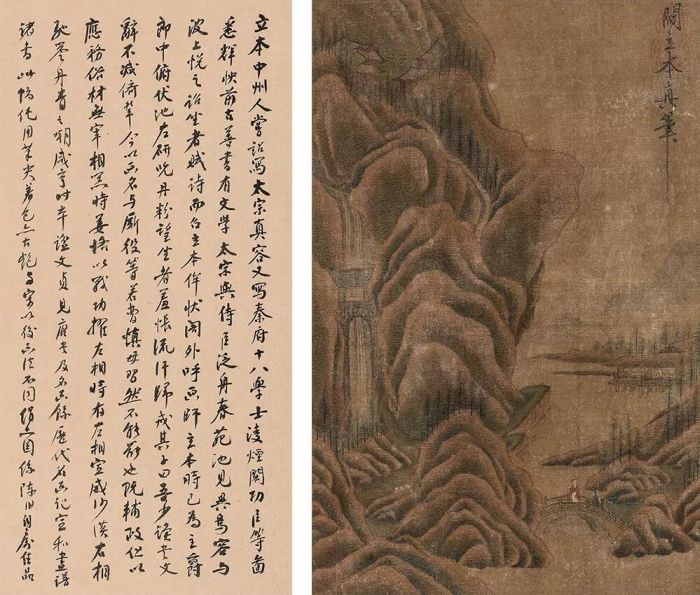 立本中州人嘗詔寫太宗真容又寫秦府十八學士凌煙閣功臣等圖
悉輝映前古善書有文學太宗與侍臣泛舟春苑池見異鳥容與
波上悅之詔坐者賦詩而召立本侔狀閣外呼畫師立本時已為主爵
郎中俯伏池左研吮丹粉望坐者羞悵流汗歸戒其子曰吾少讀書文
辭不減儕輩今以畫名與廝役等若曹慎毋習然不能罷也既輔政但以
應務俗材無宰相器時姜恪以戰功擢左相時有左相宣威沙漠右相
馳譽丹青之嘲咸亨時卒謚文貞見唐書及名畫錄歷代名畫記宣和畫譜
諸書此幀純用筆尖著色亦古艷與宋以後畫法不同絹亦固係陳舊自屬佳品
閻立本真筆